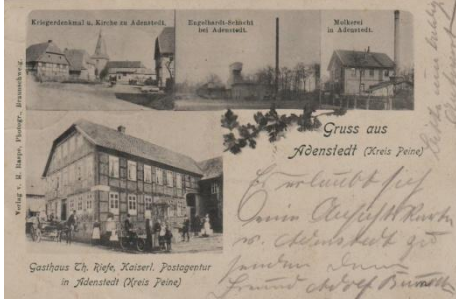 Kriegerdenkmal u. Kirche zu Adenstedt.
Engelhardt-Schacht
bei Adenstedt.
Molkerei
in Adenstedt.
Verlag v. R. Raspe, Photogr., Braunschweig.
Gruss aus
Adenstedt (Kreis Peine)
Gasthaus Th. Riefe, Kaiserl. Postagentur
in Adenstedt (Kreis Peine)
Es erlaubt sich
eine
v. Adenstedt zu
senden Dein
Freund Adolf